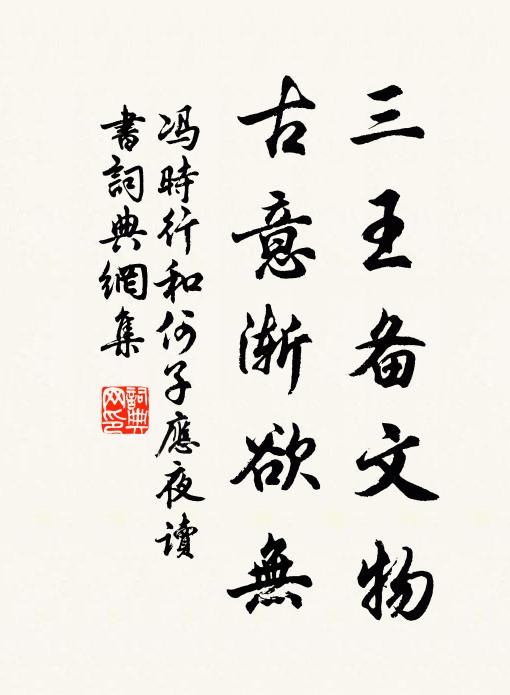 三王备文物
古意渐欲無
冯時行和何子應夜读
書詞典網集
詞典网印